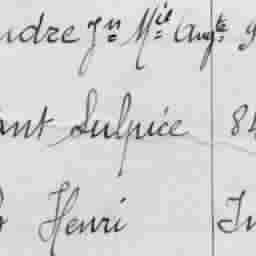 ndre Jn Mie Augte
ant Sulpice 84
Henri In